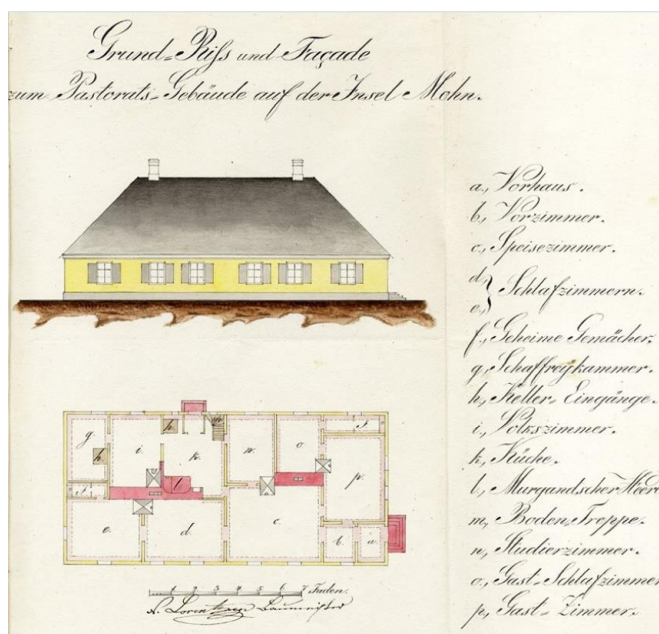 Grund-Riß und Façade
zum Pastorats-Gebäude auf der Insel Mohn.
a, Vorhaus.
b, Vorzimmer.
c, Speisezimmer.
d,
e, } Schlafzimmern.
f, Geheime Gemächer.
g, Schaffreykammer.
h, Keller Eingänge.
i, Volkszimmer.
k, Küche.
l, Murgandscher Heerd
m, Boden Treppe.
n, Studierzimmer.
o, Gast-Schlafzimmer
p, Gast-Zimmer.
g. i. h k. m n. o f.
h p.
f. l
e. d. c. b a.
1 2 3 4 5 6 7 Faden.
Baumeister